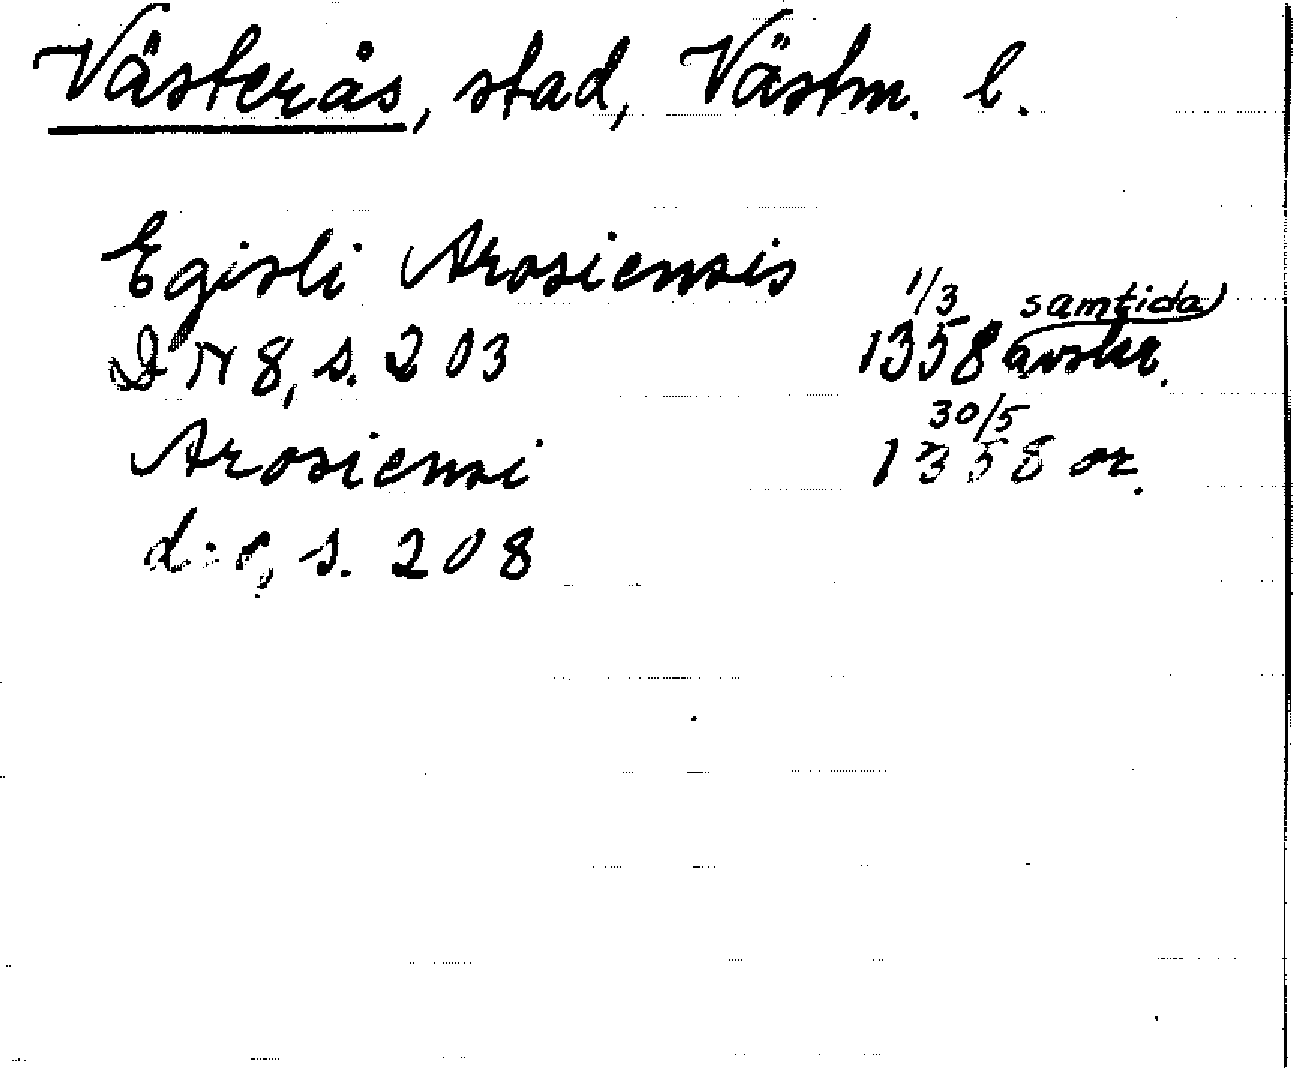 Västerås, stad, Västm. l.
Egisli Arosiensis
1/3 samtida
DN 8, s. 203 1358 avskr.
30/5
Arosiensi 1358 or.
d:o, s. 208